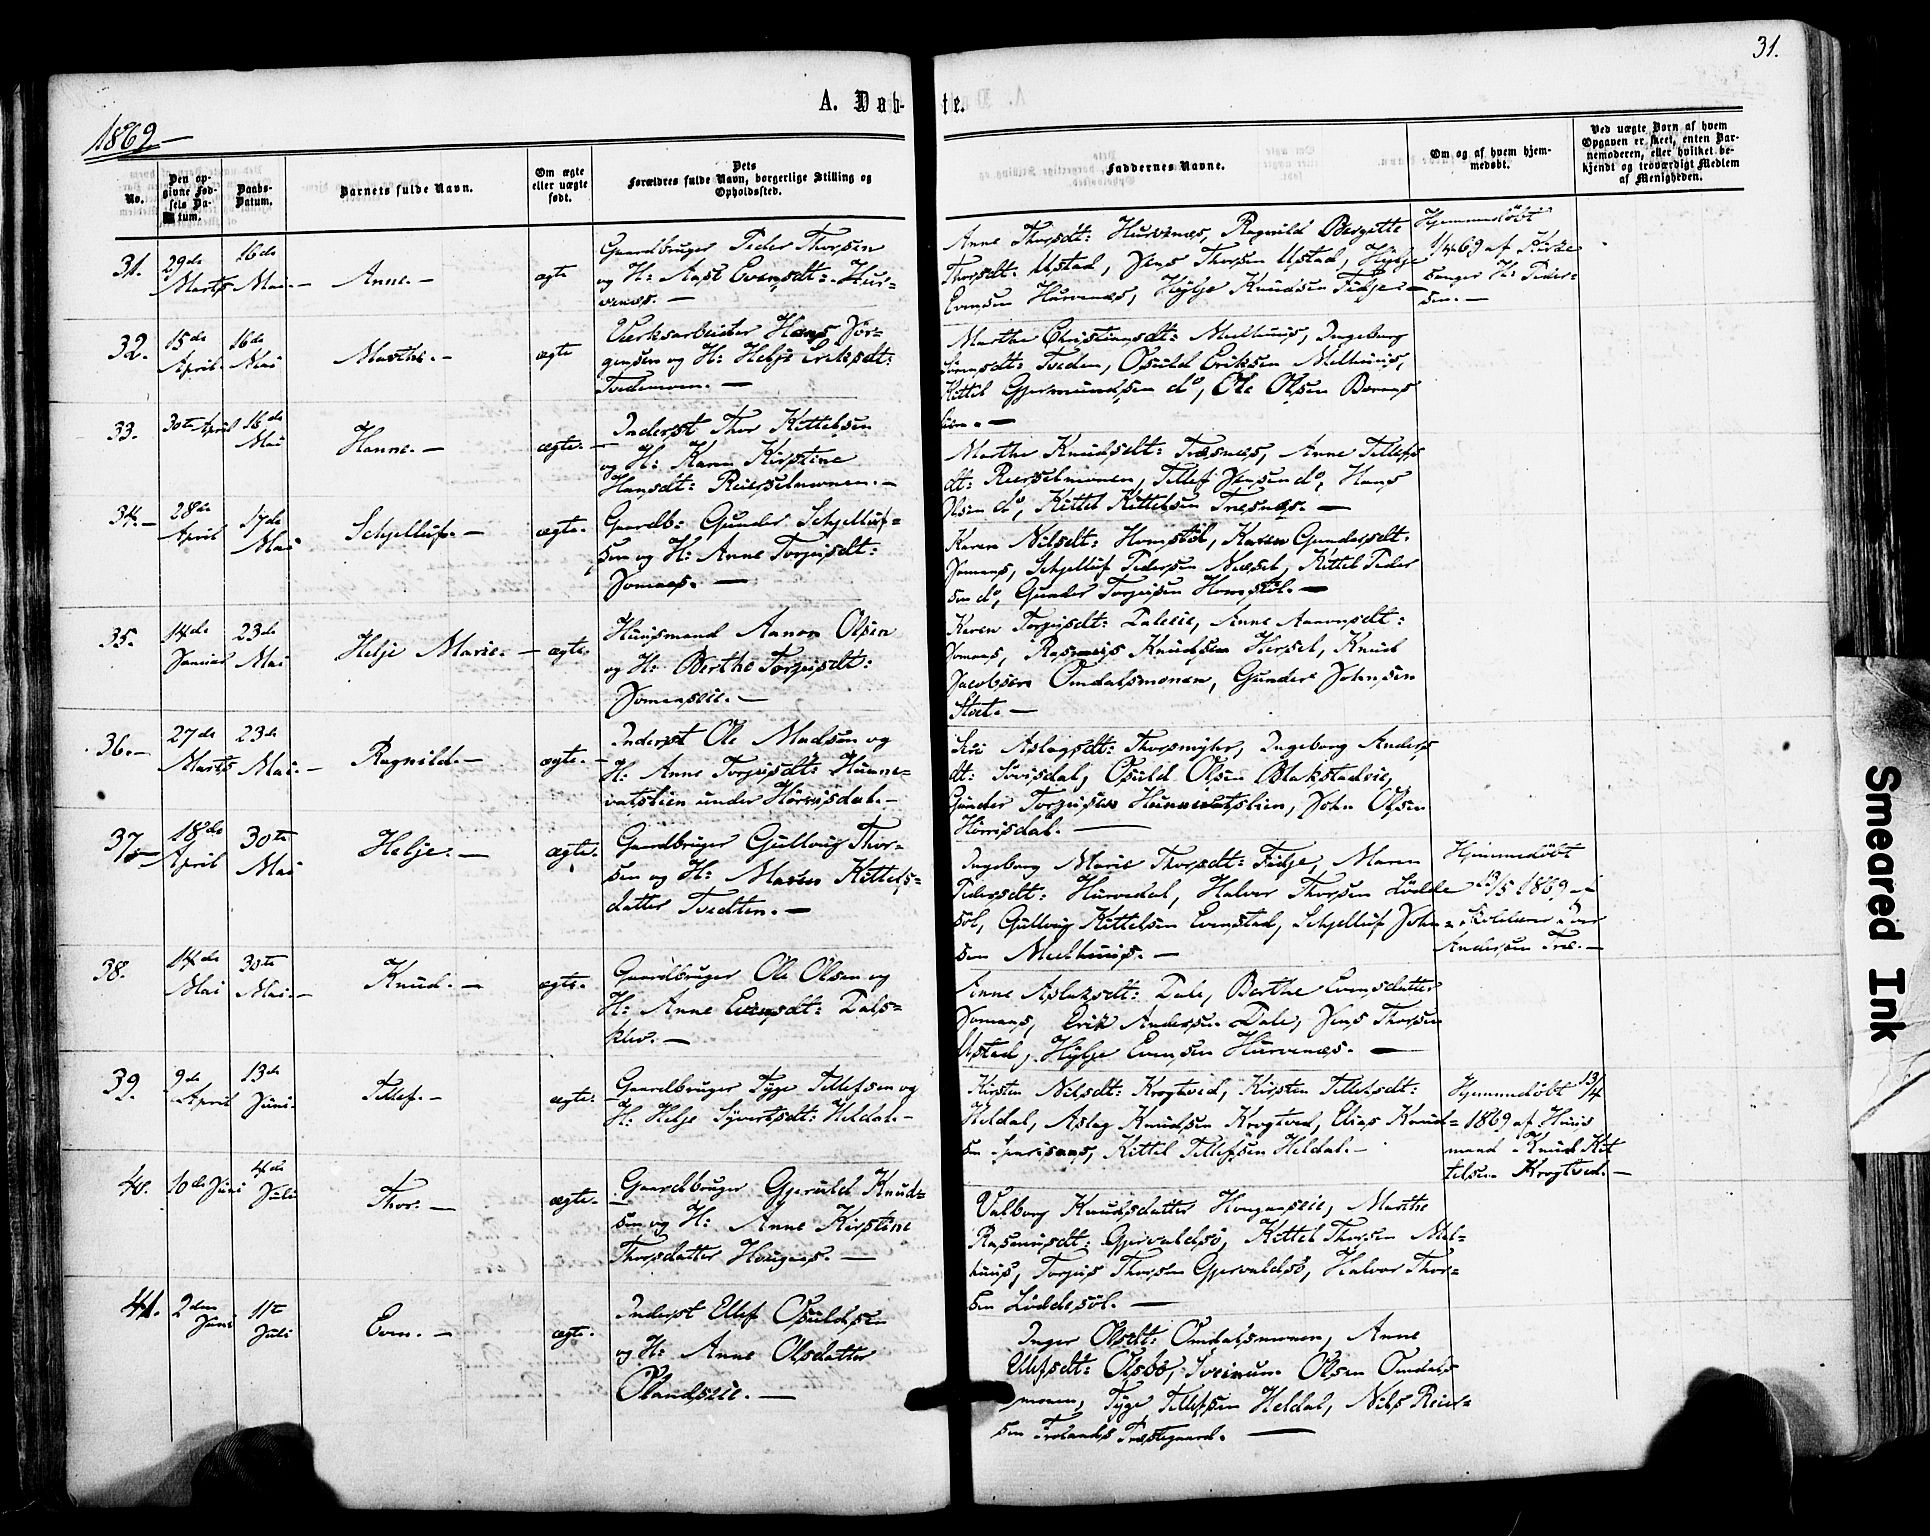 31.
A. Døb-
te.
1869
No.
Den op-
givne Fød-
sels Da-
tum.
Daabs-
Datum.
Barnets fulde Navn.
Om ægte
eller uægte
født.
Dets
Forældres fulde Navn, borgerlige Stilling og
Opholdssted.
Faddernes Navne.
Om og af hvem hjem-
medøbt.
Ved uægte Børn af hvem
Opgaven er skeet, enten Bar-
nemoderen, eller hvilket be-
kjendt og troværdigt Medlem
af Menigheden.
31.
29de
Marts
16de
Mai. —
Anne. —
ægte
Gaardbruger Peder Thorsen
og H: Aase Evensdt: Hur-
venæs. —
Anne Thorsdt: Hurvenæs, Ragnild Bergitte
Thorsdt: Ustad, Jens Thorsen Ustad, Hylje
Evensen Hurvenæs, Hylje Knudsen Fidje. —
Hjemmedøbt
1/4 69 af Kirke
sanger H: Peder-
sen. —
32.
15de
April.
16de
Mai
Marthe. —
ægte
Værksarbeider Hans Jør-
gensen og H: Helje Eriksdt:
Tvedemoen. —
Marthe Christiansdt: Melhuus, Ingeborg
Tveden, Osuld Eriksen Melhuus,
Kittel Gjermundsen do, Ole Olsen Boraas
33.
30te April
16de
Mai
Hanne. —
ægte. —
Inderst Thor Kittelsen
og H: Karen Kirstine
Hansdt: Reierselmonen. —
Marthe Knudsdt: Træsnæs, Anne Tellefs
dt: Reierselmonen, Tellef Jensen do, Hans
Olsen do, Kittel Kittelsen Træsnæs. —
34. —
28de
April
17de
Mai
Schjelluf. —
ægte.
Gaardb: Gunder Schjelluf-
sen og H: Anne Torjusdt:
Jomaas. —
Karen Nilsdt: Homstøl, Karen Gundersdt:
Jomaas, Schjelluf Pedersen Næsel, Kittel Peder
sen do, Gunder Torjusen Homstøl. —
35.
14de
Januar
23de
Mai
Helje Marie. —
ægte.
Huusmand Aanon Olsen
og H: Berthe Torjusdt:
Jomaaseie. —
Karen Torjusdt: Daleeie, Anne Aanonsdt:
Jomaas, Rasmus Knudsen Hersel, Knud
Jacobsen Omdalsmonen, Gunder Johnsen
36. —
27de
Marts
23de
Mai. —
Ragnild. —
ægte. —
Inderst Ole Madsen og
H: Anne Torjusdt: Hunne-
vatslien under Hørrisdal. —
Aslagsdt: Thorsmyhr, Ingeborg Anders
dt: Osuld Olsen Blakstadeie,
Gunder Torjusen Hunnevatslien, John Olsen
Hørrisdal. —
37. —
18de
April
30te
Mai
Helje. —
ægte.
Gaardbruger Gullveig Thor-
sen og H: Maren Kittels-
datter Tvedten. —
Ingeborg Marie Thorsdt: Fidje, Maren
Pedersdt: Hurvedal, Halvor Thorsen Lødde
søl, Gullveig Kittelsen Evenstad, Schjelluf John-
sen Melhuus. —
Hjemmedøbt
13/5 1869
Skolelærer
Andersen Træ. —
38.
14de
Mai
30te
Mai. —
Knud. —
ægte.
Gaardbruger Ole Olsen og
H: Anne Evensdt: Dals-
klev. —
Anne Aslaksdt: Dale, Berthe Evensdatter
Jomaas, Erik Andersen Dale, Jens Thorsen
Ustad, Hylje Evensen Hurvenæs. —
39.
9de
April
13de
Juni.
Tellef. —
ægte. —
Gaardbruger Tyge Tellefsen og
H: Helje Syvertsdt: Heldal. —
Kirsten Nilsdt: Krogtved, Kirsten Tellefsdt:
Heldal, Aslag Knudsen Krogtved, Elias Knud-
sen Kittel Tellefsen Heldal. —
Hjemmedøbt 13/4
1869 af Huus
mand Knud Kit
telsen Krogtved. —
40.
10de Juni
4de
Juli
Thor. —
ægte. —
Gaardbruger Gjeruld Knud-
sen og H: Anne Kirstine
Thorsdatter Hougaas. —
Valborg Knudsdatter Hougaaseie, Marthe
Rasmusdt: Gjervaldsø, Kittel Thorsen Mel-
huus, Torjus Thorsen Gjervaldsø, Halvor Thor-
sen Løddesøl. —
41.
2den
Juni
11te
Juli
Even. —
ægte.
Inderst Ellef Osuldsen
og H: Anne Olsdatter
Ølandseie. —
Inger Olsdt: Omdalsmonen, Anne
Ellefsdt: Olsbø, Olsen Omdals
monen, Tyge Tellefsen Heldal, Nils Reier-
sen Frolands Præstegaard. —
Smeared Ink